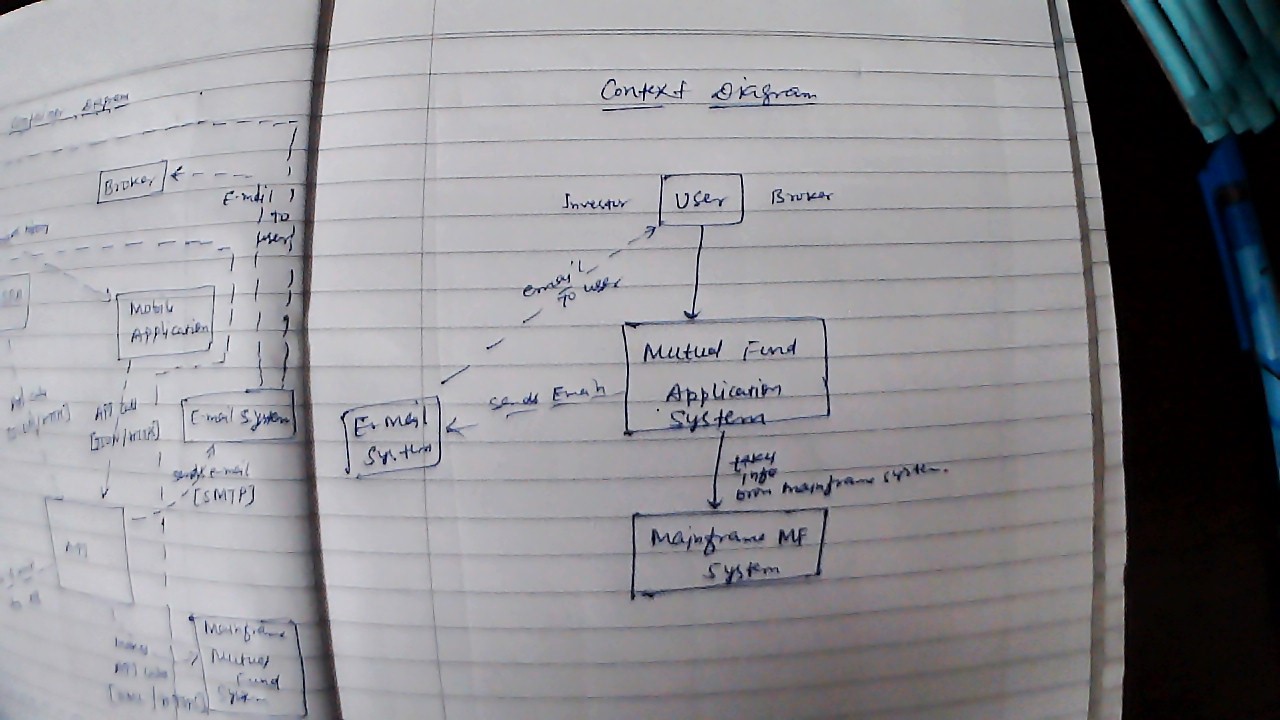 Container Diagram
Broker
E-mail
to
user
Mobile
Application
API call
[JSON/HTTPS]
E-mail System
sends e-mail
[SMTP]
API
makes
API calls
Mainframe
Mutual
Fund
System
Context Diagram
Investor
User
Broker
email
to user
Mutual Fund
Application
System
sends Email
E-Mail
System
info
mainframe system.
Mainframe MF
System